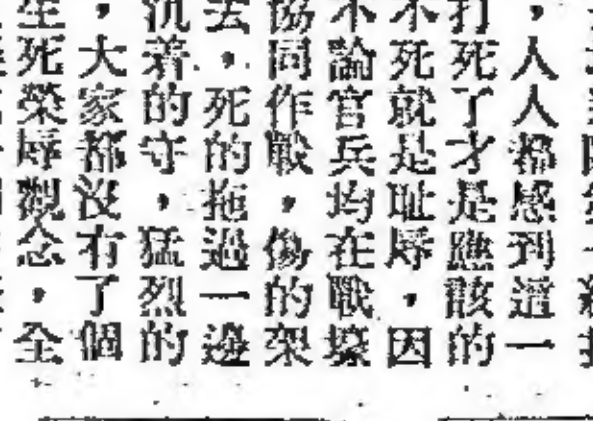 ，人人都感到這一
打死了才是應該的
不死就是耻辱，因
不論官兵均在戰壕
協同作戰，傷的架
去，死的拖過一邊
沉着的守，猛烈的
，大家都沒有了個
生死榮辱觀念，全